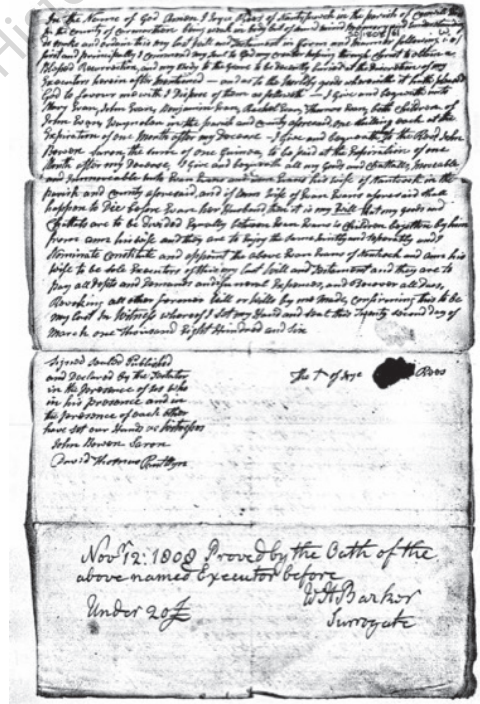 In the Name of God Amen I Joyce Rees of Nantspwch in the parish of
In the County of Carmarthen being weak in body but of sound mind
SD/1808/61
so make and ordain this my last Will and Testament in form and manner following
first and principally I commend my Soul to God my creator hoping through Christ to obtain a
Blessed Resurrection, and my Body to the grave to be decently buried at the discretion of my
Executors herein after mentioned – and as to the Worldly goods wherewith it hath pleased
God to favour me with I Dispose of them as followeth – I give and bequeath unto
Mary Evan, John Evan, Benjamin Evan, Rachel Evan, Thomas Evan, both children of
John Evan in the parish and County aforesaid, one shilling each at the
Expiration of one Month after my decease – I Give and bequeath to the Revd John
Bowen Saron, the sum of one Guinea, to be paid at the Expiration of one
Month after my Decease, I Give and bequeath all my Goods and Chattels, moveable
and immoveable unto Evan Evans and Anne Evans his wife of Nantoch in the
parish and County aforesaid, and if Anne Wife of Evan Evans aforesaid shall
happen to Die before Evan her Husband, then it is my Will that my goods and
Chattels are to be divided Equally between Evan Evans is Children begotten by him
from Anne his wife and they are to Enjoy the same Jointly and seperatly and I
Nominate Constitute and appoint the above Evan Evans of Nantoch and Anne his
wife to be sole Executors of this my last Will and Testament and they are to
pay all Debts and Demands and funeral Expenses, and Recover all dues,
Revoking all other former Will or Wills by me Made, confirming this to be
my last In Witness whereof I set my Hand and seal this Twenty second Day of
March one Thousand Eight Hundred and Six
Signed sealed Published
and Declared by the Testator
in the presence of us who
in his presence and in
the presence of each other
have set our Hands as Witnesses
John Bowen Saron
David Thomas
The + of Joyce Rees
Novr 12: 1808 Proved by the Oath of the
above named Executor before
W H Barker
Surrogate
Under 20£